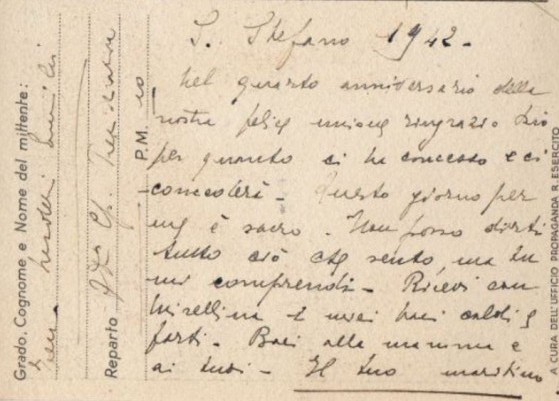 S. Stefano 1942-
Nel quarto anniversario della
nostra felice unione ringrazio Dio
per quanto ci ha concesso e ci
concederà - Questo giorno per
me è sacro. Non posso dirti
tutto ciò che sento, ma tu
mi comprendi - Ricevi con
Mirellina i miei baci caldi e
forti. Baci alla mamma e
ai tuoi - Il tuo maritino
Grado, Cognome e Nome del mittente:
Reparto
P.M. 10
A CURA DELL'UFFICIO PROPAGANDA R. ESERCITO